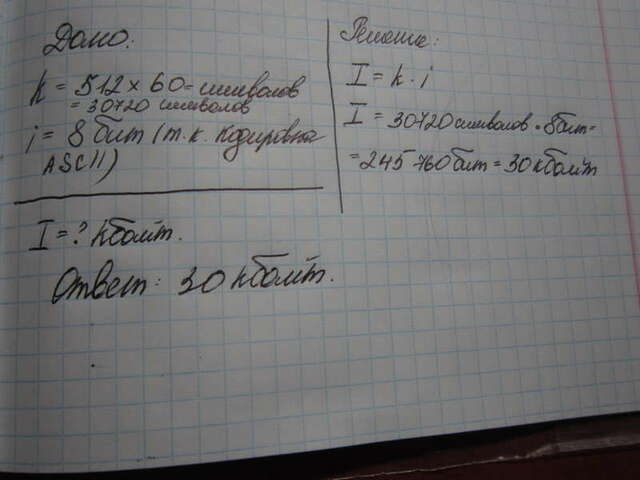 Дано:
k = 512 × 60 = символов
= 30720 символов
i = 8 бит (т.к. кодировка
ASCII)
I = ? кбайт.
Ответ: 30 кбайт.
Решение:
I = k · i
I = 30720 символов · 8 бит =
= 245 760 бит = 30 кбайт